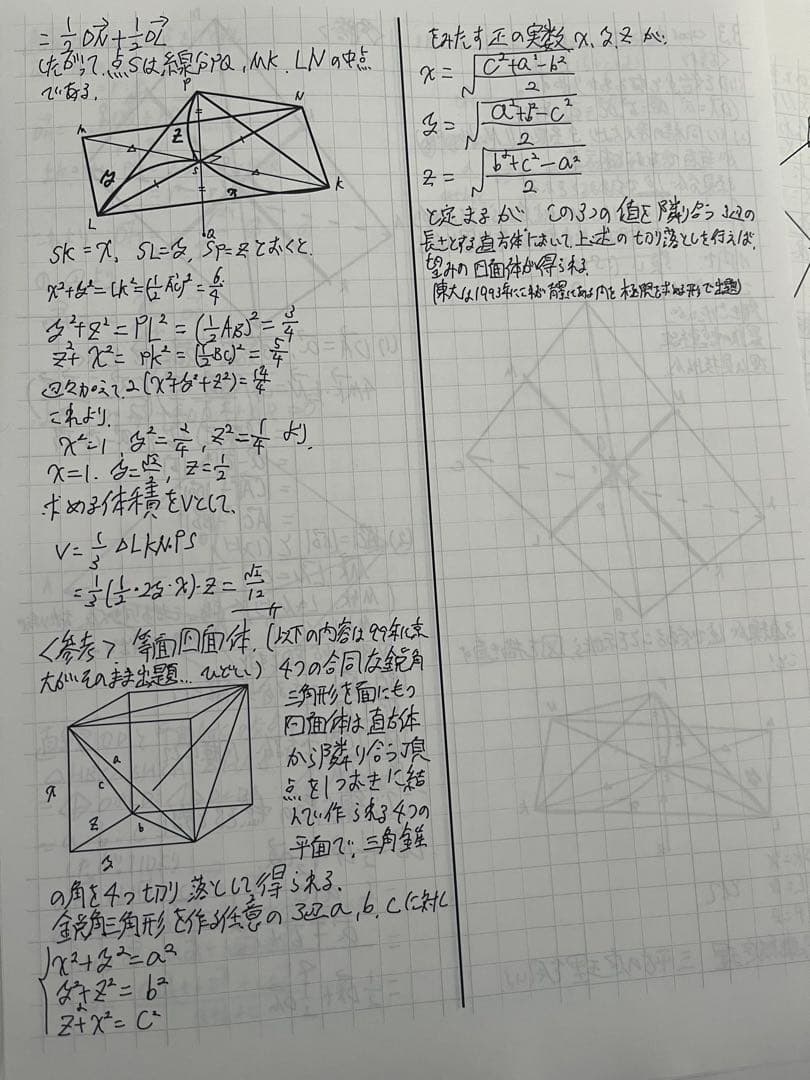 = 1/2 ON→ + 1/2 OL→
したがって、点Sは線分PQ, MK, LNの中点
である。
P
N
M
Z
S
y
x
K
L
Q
SK = x, SL = y, SP = z とおくと、
x²+y² = LK² = (1/2 AC)² = 6/4
y²+z² = PL² = (1/2 AB)² = 3/4
z²+x² = PK² = (1/2 BC)² = 5/4
辺々加えて、2(x²+y²+z²) = 14/4
これより、
x²=1, y²=2/4, z²=1/4 より、
x=1, y=√2/2, z=1/2
求める体積をVとして、
V = 1/3 △LKN・PS
= 1/3 (1/2・2y・x)・z = √2/12
<参考> 等面四面体. (以下の内容は99年に京
大がそのまま出題… ひどい) 4つの合同な鋭角
三角形を面にもつ
四面体は直方体
から隣り合う頂
点を1つおきに結
んで作られる4つの
平面で、三角錐
の角を4つ切り落として得られる.
x
a
c
z
b
y
鋭角三角形を作る任意の3辺a, b, cに対し
x²+y² = a²
y²+z² = b²
z²+x² = c²
をみたす正の実数 x, y, z が、
x = √((c²+a²-b²)/2)
y = √((a²+b²-c²)/2)
z = √((b²+c²-a²)/2)
と定まるが この3つの値を隣り合う3辺の
長さとする直方体において、上述の切り落としを行えば、
望みの四面体が得られる.
は1993年にこれが背景にある内を極限を求める形で出題)